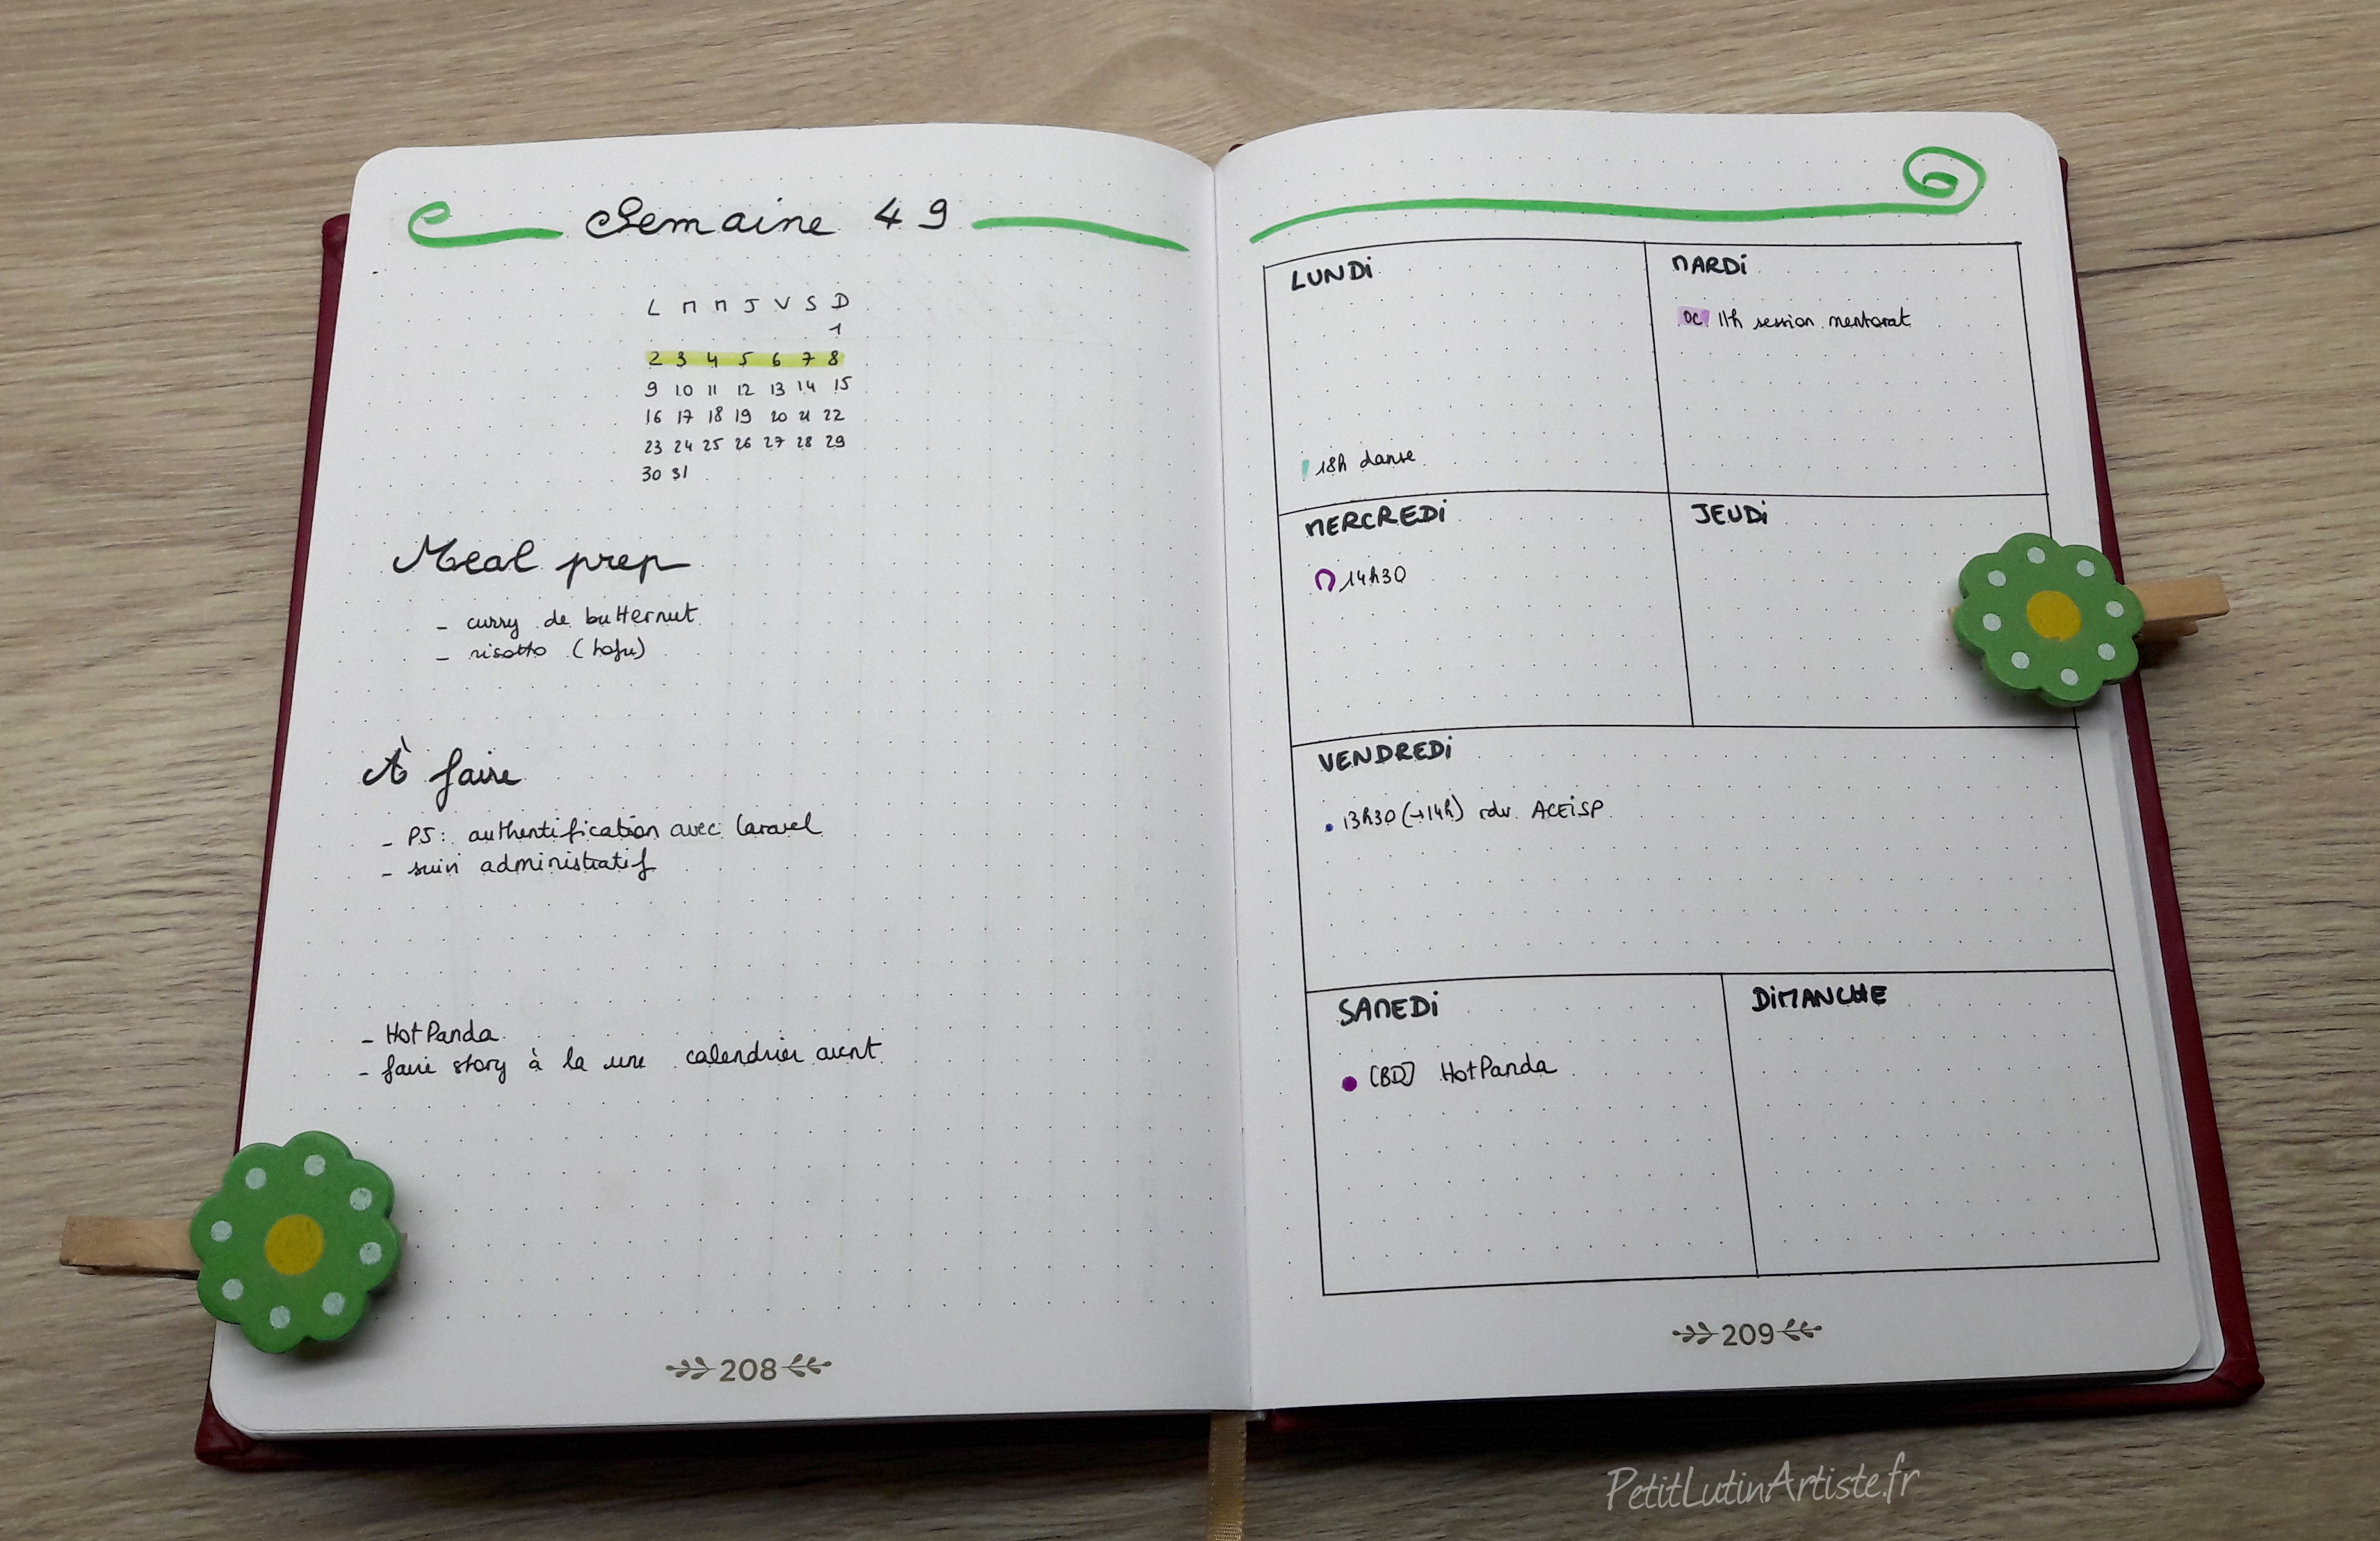 Semaine 49
L M M J V S D
1
2 3 4 5 6 7 8
9 10 11 12 13 14 15
16 17 18 19 20 21 22
23 24 25 26 27 28 29
30 31
Meal prep
- curry de butternut
- risotto (tofu)
À faire
- P5: authentification avec laravel
- suivi administratif
- HotPanda
- faire story à la une calendrier avent
208
LUNDi
18h danse
MARDi
OC 11h session mentorat
MERCREDi
14h30
JEUDi
VENDREDi
• 13h30 (→14h) rdv ACEiSP
SAMEDi
• [BD] HotPanda
DiMANCHE
209
PetitLutinArtiste.fr